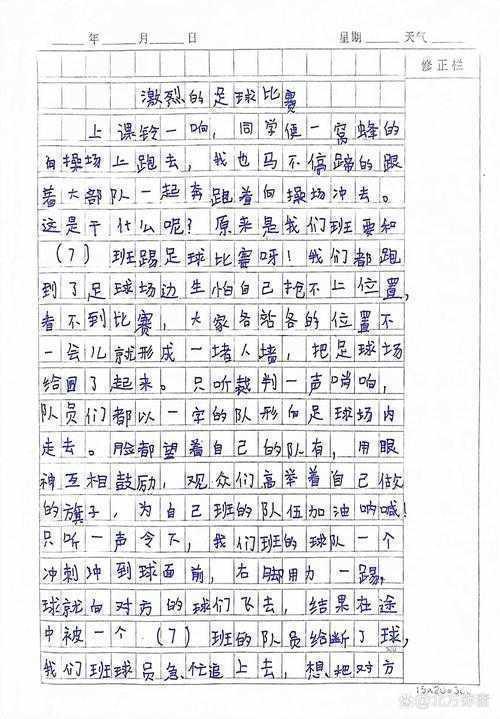 年 月 日 星期 天气
修正栏
激烈的足球比赛
上课铃一响，同学便一窝蜂的
向操场上跑去，我也马不停蹄的跟
着大部队一起奔跑着向操场冲去。
这是干什么呢？原来是我们班要和
（7）班踢足球比赛呀！我们都跑
到了足球场边生怕自己抢不上位置，
看不到比赛，大家各站各的位置不
一会儿就形成一堵人墙，把足球场
给围了起来。只听裁判一声哨响，
队员们都以一字的队形向足球场内
走去。脸都望着自己的队有，用眼
神互相鼓励，观众们高举着自己做
的旗子，为自己班的队伍加油呐喊！
只听一声令下，我们班的球队一个
冲刺冲到球面前，右脚用力一踢，
球就向对方的球们飞去，结果在途
中被一个（7）班的队员给断了球，
我们班球员急忙追上去，想把对方
15×20=300